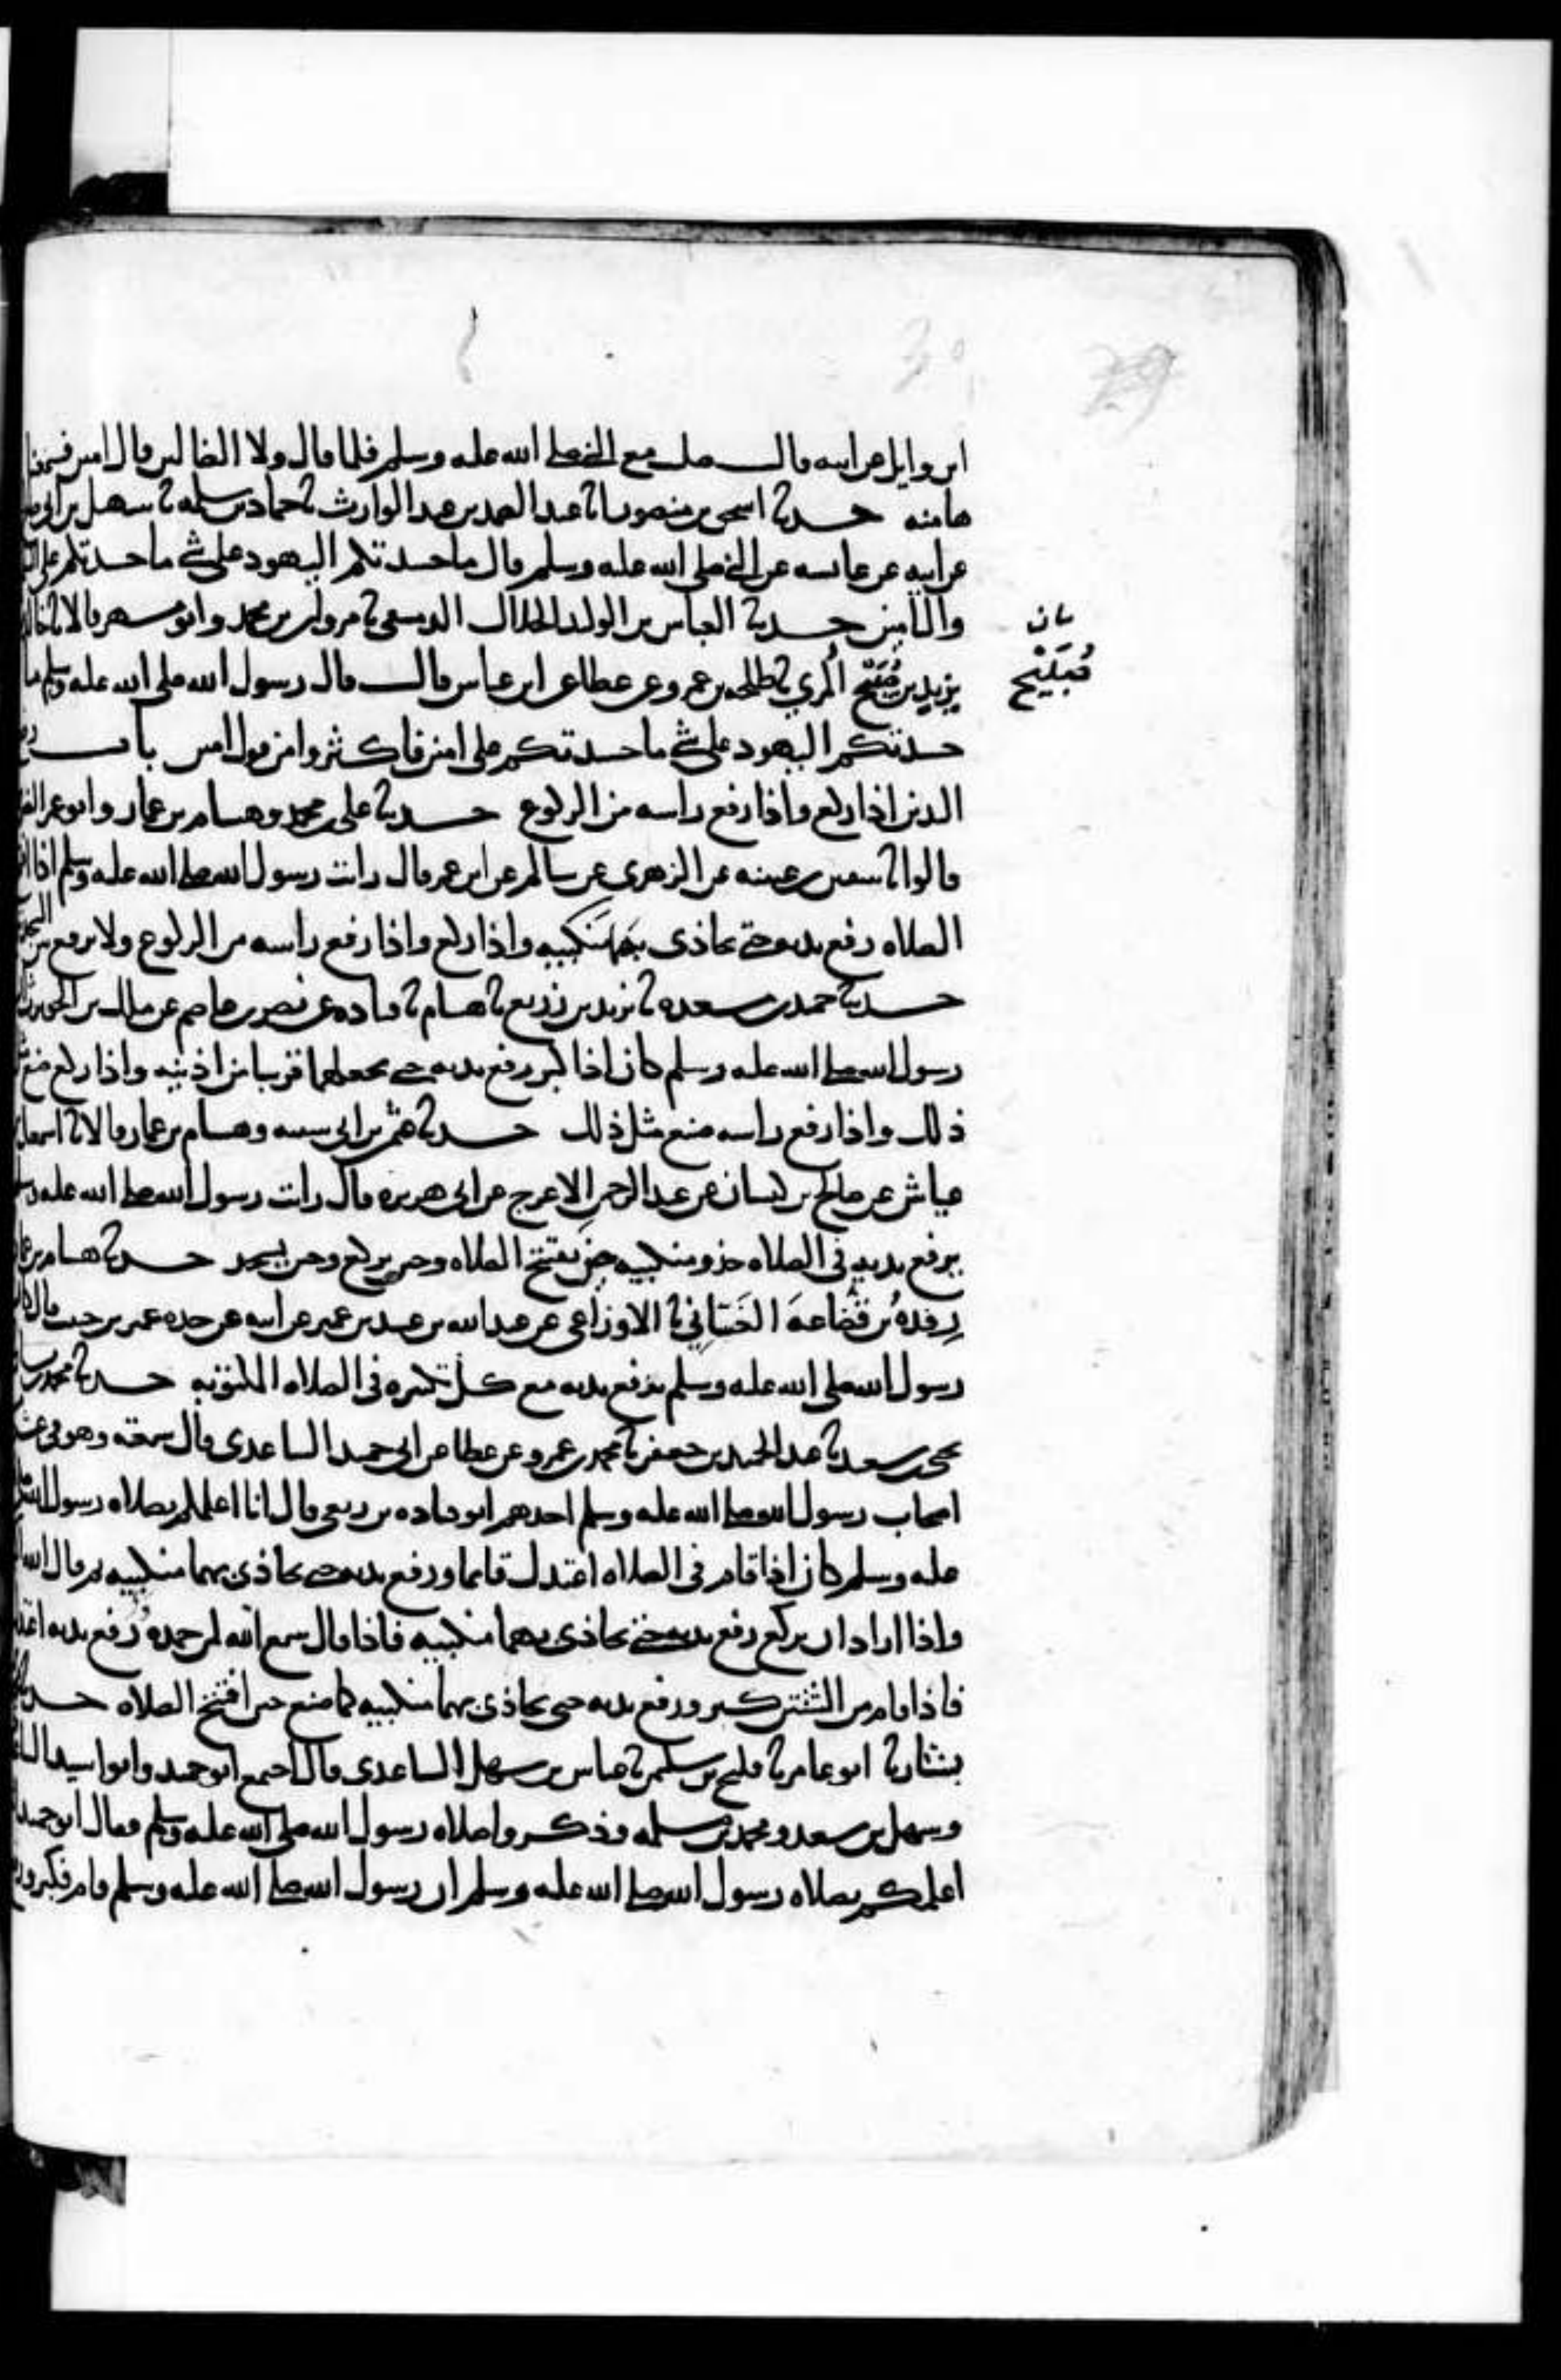 ابن وايل عن ابيه قال صليت مع النبي صلى الله عليه وسلم فلما قال ولا الضالين قال امين فسمعنا
ها منه حدثنا اسحق بن منصور انا عبد الصمد بن عبد الوارث نا حماد بن سلمه نا سهيل بن ابي
عن ابيه عن عايشه عن النبي صلى الله عليه وسلم قال ما حسدتكم اليهود على شي ما حسدتكم على
والتامين حدثنا العباس بن الوليد الخلال الدمشقي نا مروان بن محمد وابو مسهر قالا نا خالد
يزيد بن صُبَيْح المُري نا طلحه بن عمرو عن عطا عن ابن عباس قال قال رسول الله صلى الله عليه وسلم ما
بيان
صُبَيْح
حسدتكم اليهود على شي ما حسدتكم على امين فاكثروا من قول امين باب رفع
اليدين اذا ركع واذا رفع راسه من الركوع حدثنا علي بن محمد وهشام بن عمار وابو عمر
قالوا نا سفين بن عيينه عن الزهري عن سالم عن ابن عمر قال رايت رسول الله صلى الله عليه وسلم اذا
الصلاه رفع يديه حتى يحاذي بهما منكبيه واذا ركع واذا رفع راسه من الركوع ولا يرفع بين السجد
حدثنا حميد بن مسعده نا يزيد بن زريع نا هشام نا قتاده عن نصر بن عاصم عن ملك بن الحويرث
رسول الله صلى الله عليه وسلم كان اذا كبر رفع يديه حتى يجعلهما قريبا من اذنيه واذا ركع صنع
ذلك واذا رفع راسه صنع مثل ذلك حدثنا عثمن بن ابي شيبه وهشام بن عمار قالا نا اسمعيل
عياش عن صالح بن كيسان عن عبد الرحمن الاعرج عن ابي هريره قال رايت رسول الله صلى الله عليه وسلم
يرفع يديه في الصلاه حذو منكبيه حين يفتتح الصلاه وحين يركع وحين يسجد حدثنا هشام بن عمار
رِفدهُ بن قُضاعهَ الغَسّاني نا الاوزاعي عن عبد الله بن عبيد بن عمير عن ابيه عن جده عمير بن حبيب قال كان
رسول الله صلى الله عليه وسلم يرفع يديه مع كل تكبيره في الصلاه المكتوبه حدثنا محمد بن
يحيى بن سعيد نا عبد الحميد بن جعفر نا محمد بن عمرو عن عطا عن ابي حميد الساعدي قال سمعته وهو في
اصحاب رسول الله صلى الله عليه وسلم احدهم ابو قتاده بن ربعي قال انا اعلمكم بصلاه رسول الله
عليه وسلم كان اذا قام في الصلاه اعتدل قايما ورفع يديه حتى يحاذي بهما منكبيه ثم قال الله
واذا اراد ان يركع رفع يديه حتى يحاذي بهما منكبيه فاذا قال سمع الله لمن حمده رفع يديه
فاذا قام من الثنتين كبر ورفع يديه حتى يحاذي بهما منكبيه كما صنع حين افتتح الصلاه حدثنا
بشار نا ابو عامر نا فليح بن سليمن نا عباس بن سهل الساعدي قال اجتمع ابو حميد وابو اسيد
وسهل بن سعد ومحمد بن مسلمه وذكروا صلاه رسول الله صلى الله عليه وسلم فقال ابو حميد
اعلمكم بصلاه رسول الله صلى الله عليه وسلم ان رسول الله صلى الله عليه وسلم قام فكبر ورفع